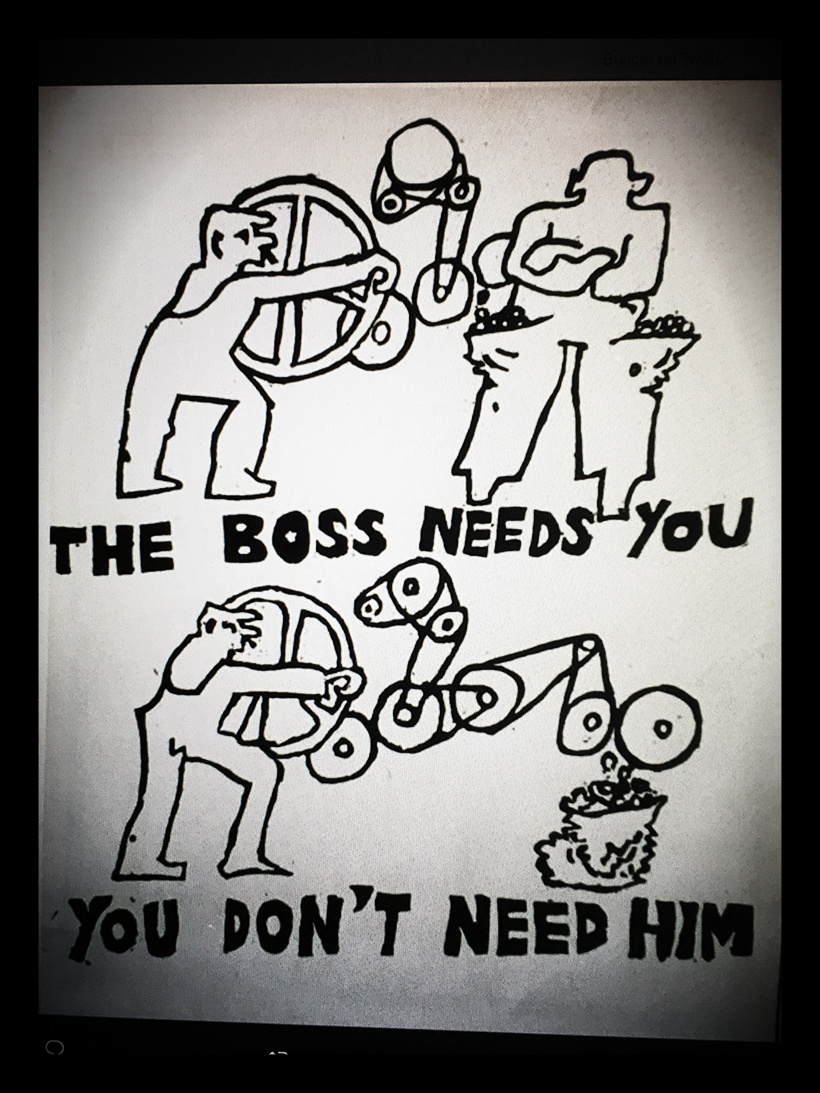 THE BOSS NEEDS YOU
YOU DON'T NEED HIM